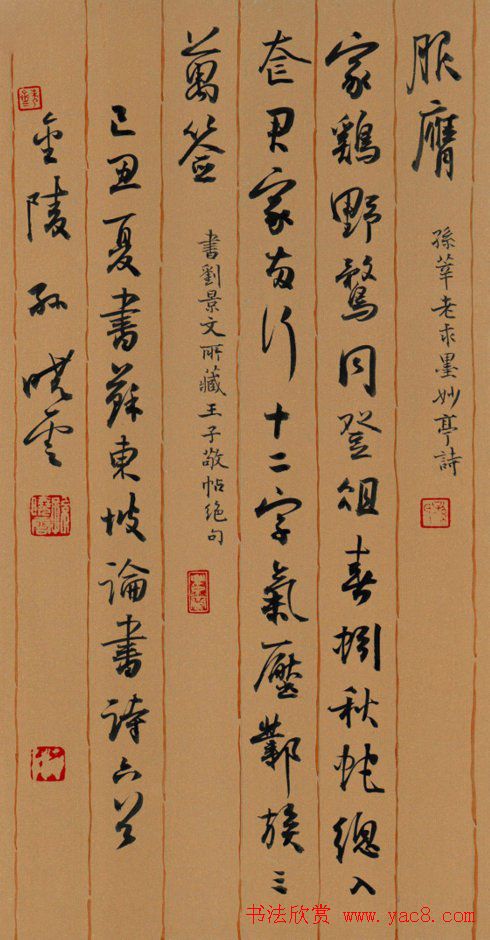 服膺
孫莘老求墨妙亭詩
家鷄野鶩同登俎春蚓秋蛇總入
奩君家兩行十二字氣壓鄴侯三
萬簽
書劉景文所藏王子敬帖絕句
己丑夏書蘇東坡論書詩六首
金陵孫曉雲
书法欣赏 www.yac8.com